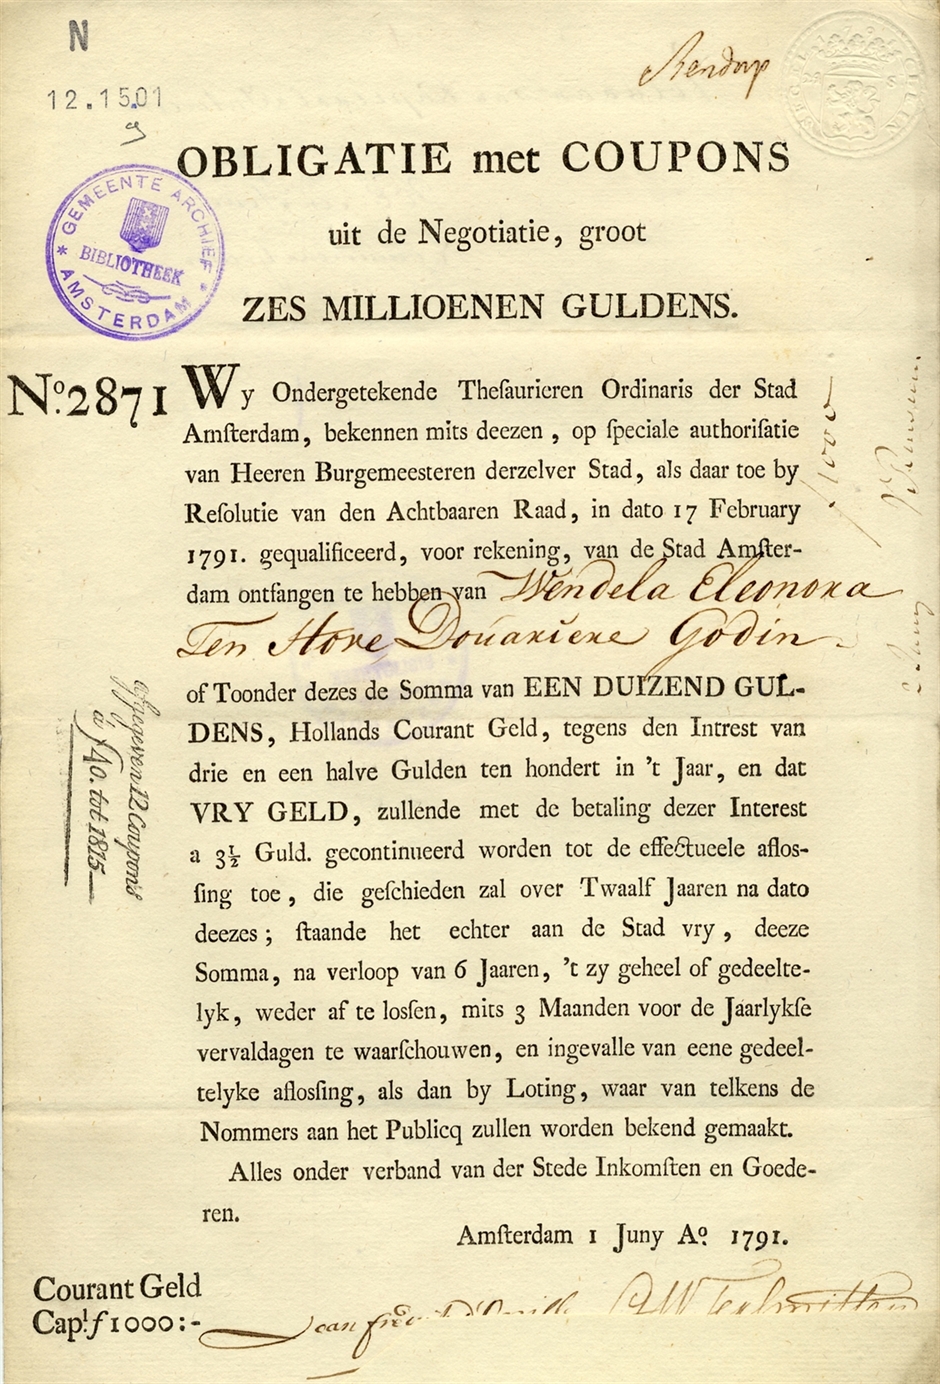 N
12.1501
Rendorp
OBLIGATIE met COUPONS
uit de Negotiatie, groot
ZES MILLIOENEN GULDENS.
GEMEENTE ARCHIEF
BIBLIOTHEEK
* AMSTERDAM *
Nº. 2871
Wy Ondergetekende Theſaurieren Ordinaris der Stad
Amſterdam, bekennen mits deezen, op ſpeciale authoriſatie
van Heeren Burgemeesteren derzelver Stad, als daar toe by
Reſolutie van den Achtbaaren Raad, in dato 17 February
1791. gequalificeerd, voor rekening, van de Stad Amſter-
dam ontfangen te hebben van Wendela Eleonora
Ten Hove Douariere Godin
of Toonder dezes de Somma van EEN DUIZEND GUL-
DENS, Hollands Courant Geld, tegens den Intrest van
drie en een halve Gulden ten hondert in 't Jaar, en dat
VRY GELD, zullende met de betaling dezer Interest
a 3½ Guld. gecontinueerd worden tot de effectueele aflos-
ſing toe, die geſchieden zal over Twaalf Jaaren na dato
deezes; ſtaande het echter aan de Stad vry, deeze
Somma, na verloop van 6 Jaaren, 't zy geheel of gedeelte-
lyk, weder af te losſen, mits 3 Maanden voor de Jaarlykſe
vervaldagen te waarſchouwen, en ingevalle van eene gedeel-
telyke aflosſing, als dan by Loting, waar van telkens de
Nommers aan het Publicq zullen worden bekend gemaakt.
Alles onder verband van der Stede Inkomſten en Goede-
ren.
Amſterdam 1 Juny Aº. 1791.
afgegeven 12 Coupons
à f40. tot 1815
Courant Geld
Capl. ƒ1000:-